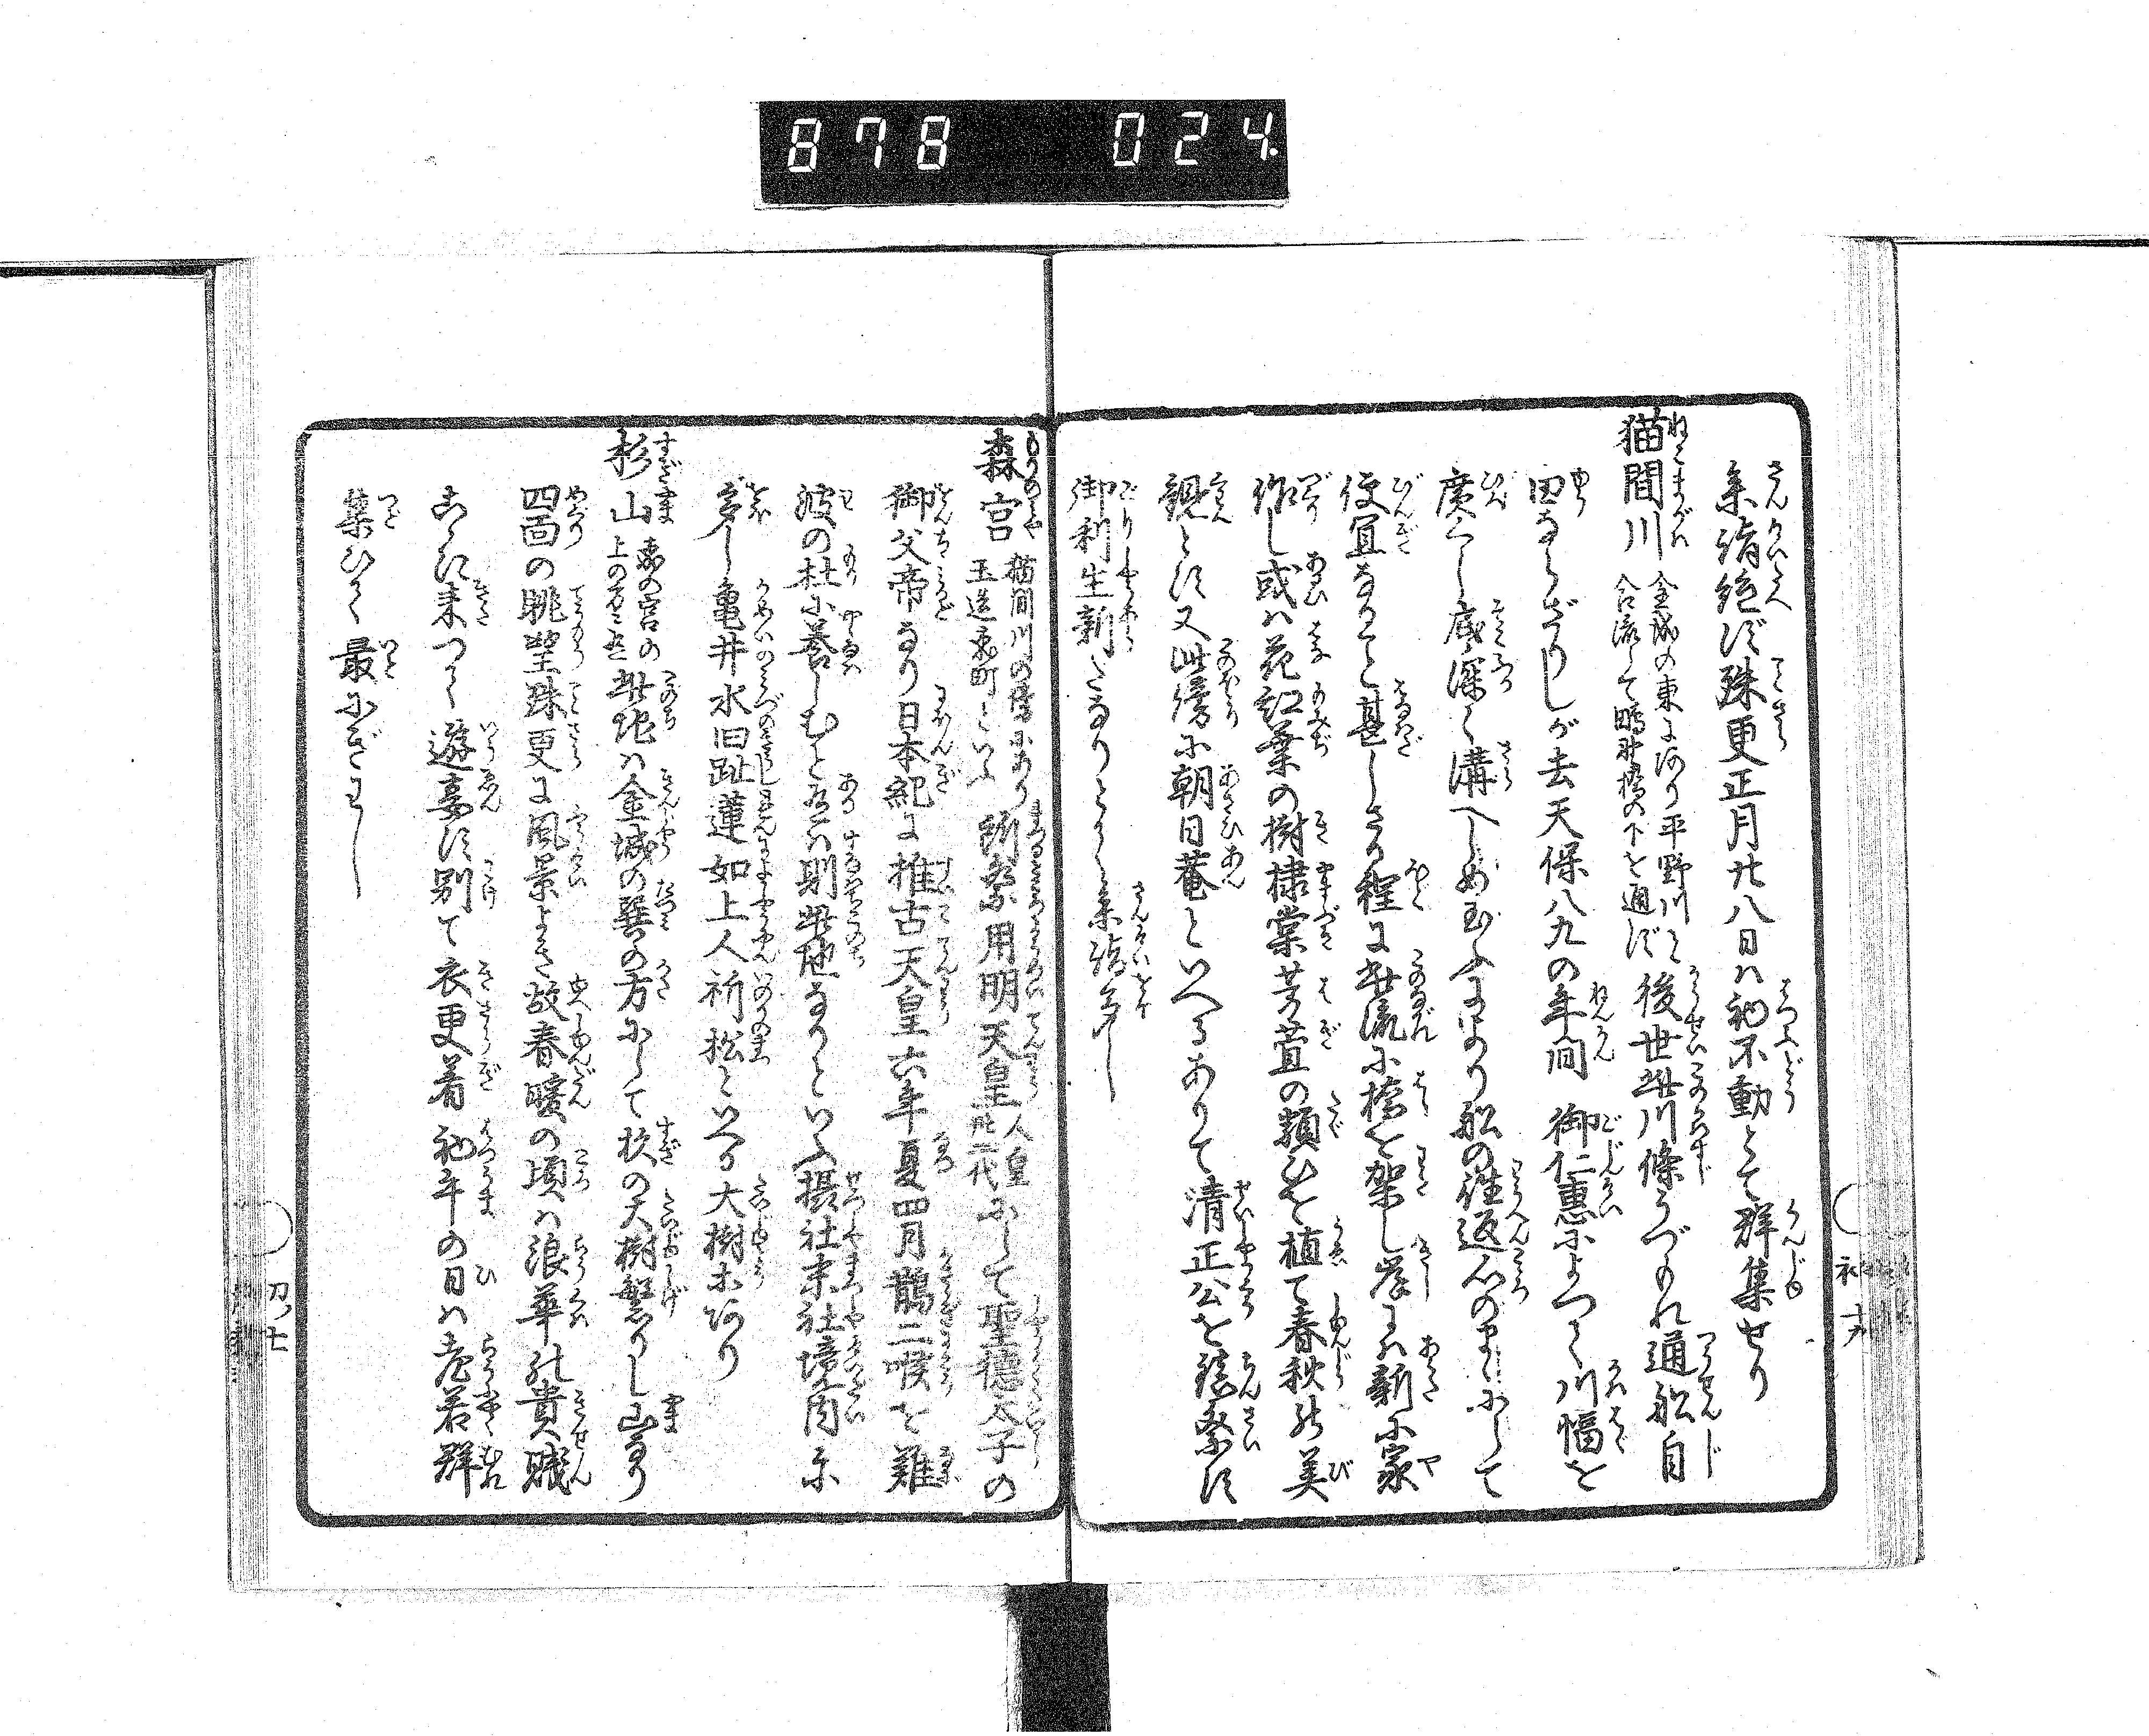 878 024
参詣絶ず殊更正月廿八日ハ初不動とて群集せり
猫間川 金城の東に阿り平野川と合流して鴫野橋の下を通ず 後世此川條うづもれ通船自
由ならざりしが去天保八九の年間 御仁恵によつて川幅を
廣くし底深く溝へしめ玉ふにより船の往返心のまゝにして
便宜なること甚しさる程に此流に橋を架し岸にハ新に家
作し或ハ花紅葉の樹棣棠芽萱の類ひを植て春秋の美
観とす又此傍に朝日菴といへるありて清正公を鎮祭す
御利生新たなりとて参詣多し
森宮 猫間川の傍にあり玉造東町といふ 所祭用明天皇 人皇卅二代 にして聖徳太子の
御父帝なり日本紀に推古天皇六年夏四月鵲二喉を難
波の杜に養しむと有ハ則此地なりといふ摂社末社境内に
多し亀井水旧趾蓮如上人祈松といへる大樹爾阿り
杉山 森の宮の上の方にあり 此地ハ金城の巽の方にして杉の大樹繁りし山なり
四面の眺望殊更に風景よき故春暖の頃ハ浪華の貴賤
こゝに来つて遊宴す別て衣更着初午の日ハ老若群
集ひて最にぎわし